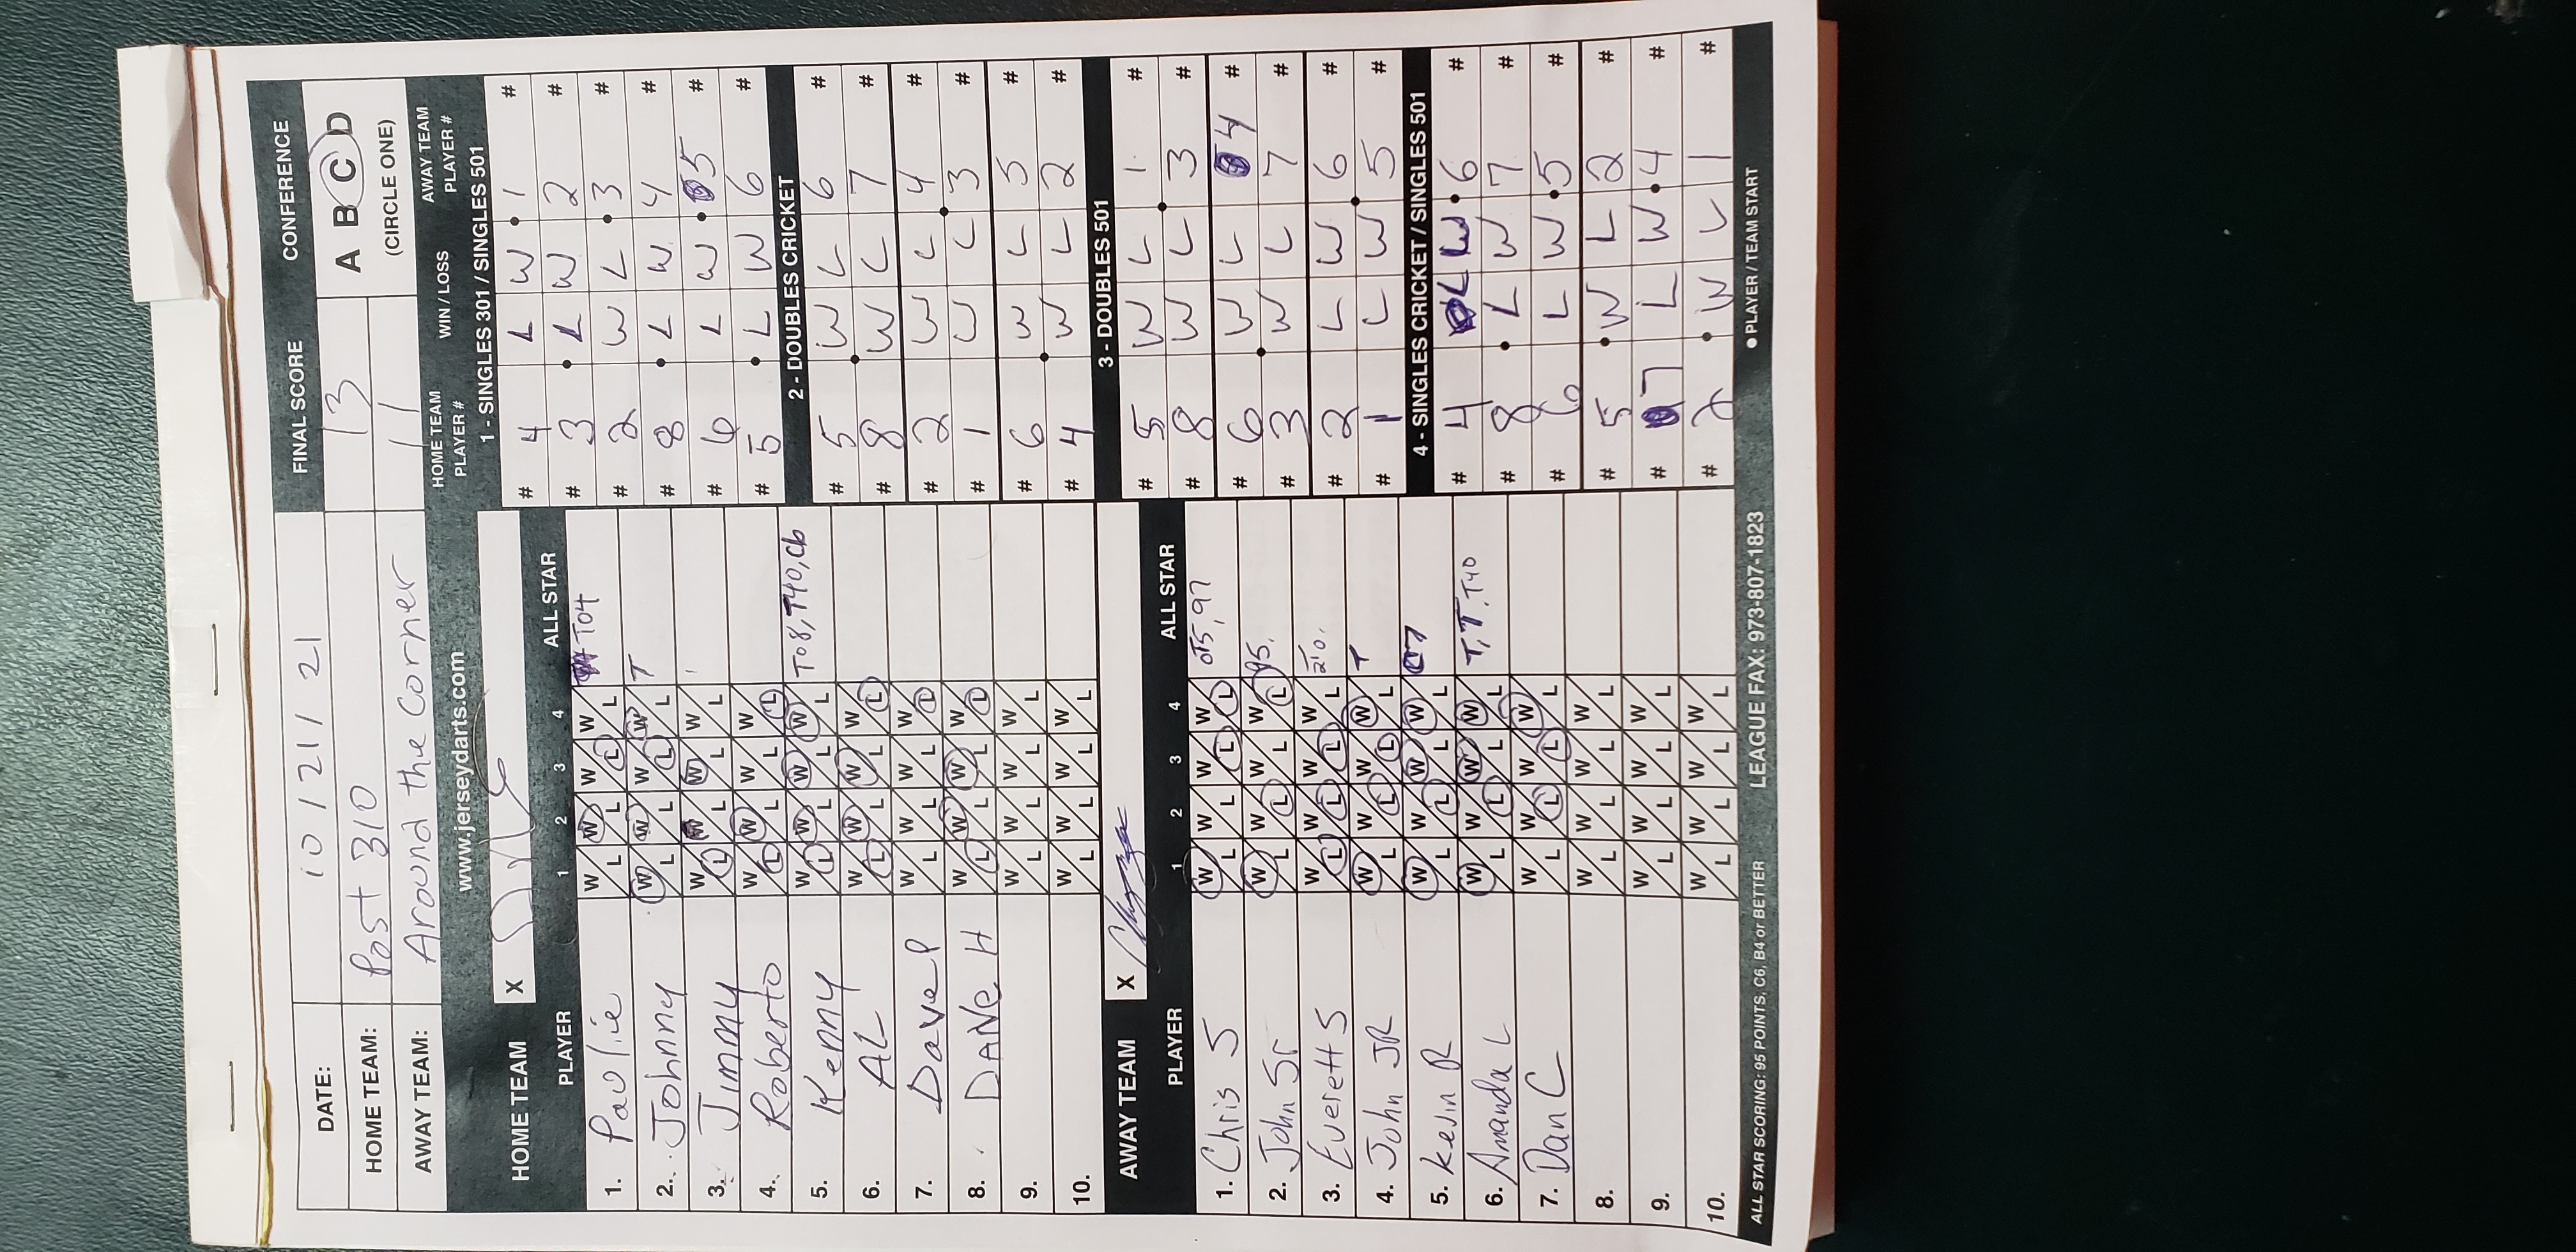 DATE: 10/21/21
HOME TEAM: Post 310
AWAY TEAM: Around the Corner
FINAL SCORE
13
11
CONFERENCE
A B C D
(CIRCLE ONE)
www.jerseydarts.com
HOME TEAM X
PLAYER 1 2 3 4 ALL STAR
1. Paulie W/L W/L W/L W/L T04
2. Johnny W/L W/L W/L W/L T
3. Jimmy W/L W/L W/L W/L
4. Roberto W/L W/L W/L W/L
5. Kenny W/L W/L W/L W/L T08, T40, C6
6. AL W/L W/L W/L W/L
7. Dave P W/L W/L W/L W/L
8. DANE H W/L W/L W/L W/L
9. W/L W/L W/L W/L
10. W/L W/L W/L W/L
AWAY TEAM X
PLAYER 1 2 3 4 ALL STAR
1. Chris S W/L W/L W/L W/L 97
2. John Sr W/L W/L W/L W/L 95.
3. Everett S W/L W/L W/L W/L
4. John JR W/L W/L W/L W/L T
5. Kevin R W/L W/L W/L W/L
6. Amanda L W/L W/L W/L W/L T, T, T40
7. Dan C W/L W/L W/L W/L
8. W/L W/L W/L W/L
9. W/L W/L W/L W/L
10. W/L W/L W/L W/L
ALL STAR SCORING: 95 POINTS, C6, B4 or BETTER
LEAGUE FAX: 973-807-1823
HOME TEAM PLAYER # WIN / LOSS AWAY TEAM PLAYER #
1 - SINGLES 301 / SINGLES 501
# 4 L W 1 #
# 3 L W 2 #
# 2 W L 3 #
# 8 L W 4 #
# 6 L W 5 #
# 5 L W 6 #
2 - DOUBLES CRICKET
# 5 W L 6 #
# 8 W L 7 #
# 2 W L 4 #
# 1 W L 3 #
# 6 W L 5 #
# 4 W L 2 #
3 - DOUBLES 501
# 5 W L 1 #
# 8 W L 3 #
# 6 W L 4 #
# 3 W L 7 #
# 2 L W 6 #
# 1 L W 5 #
4 - SINGLES CRICKET / SINGLES 501
# 4 L W 6 #
# 8 L W 7 #
# 6 L W 5 #
# 5 W L 2 #
# 7 L W 4 #
# 2 W L 1 #
● PLAYER / TEAM START